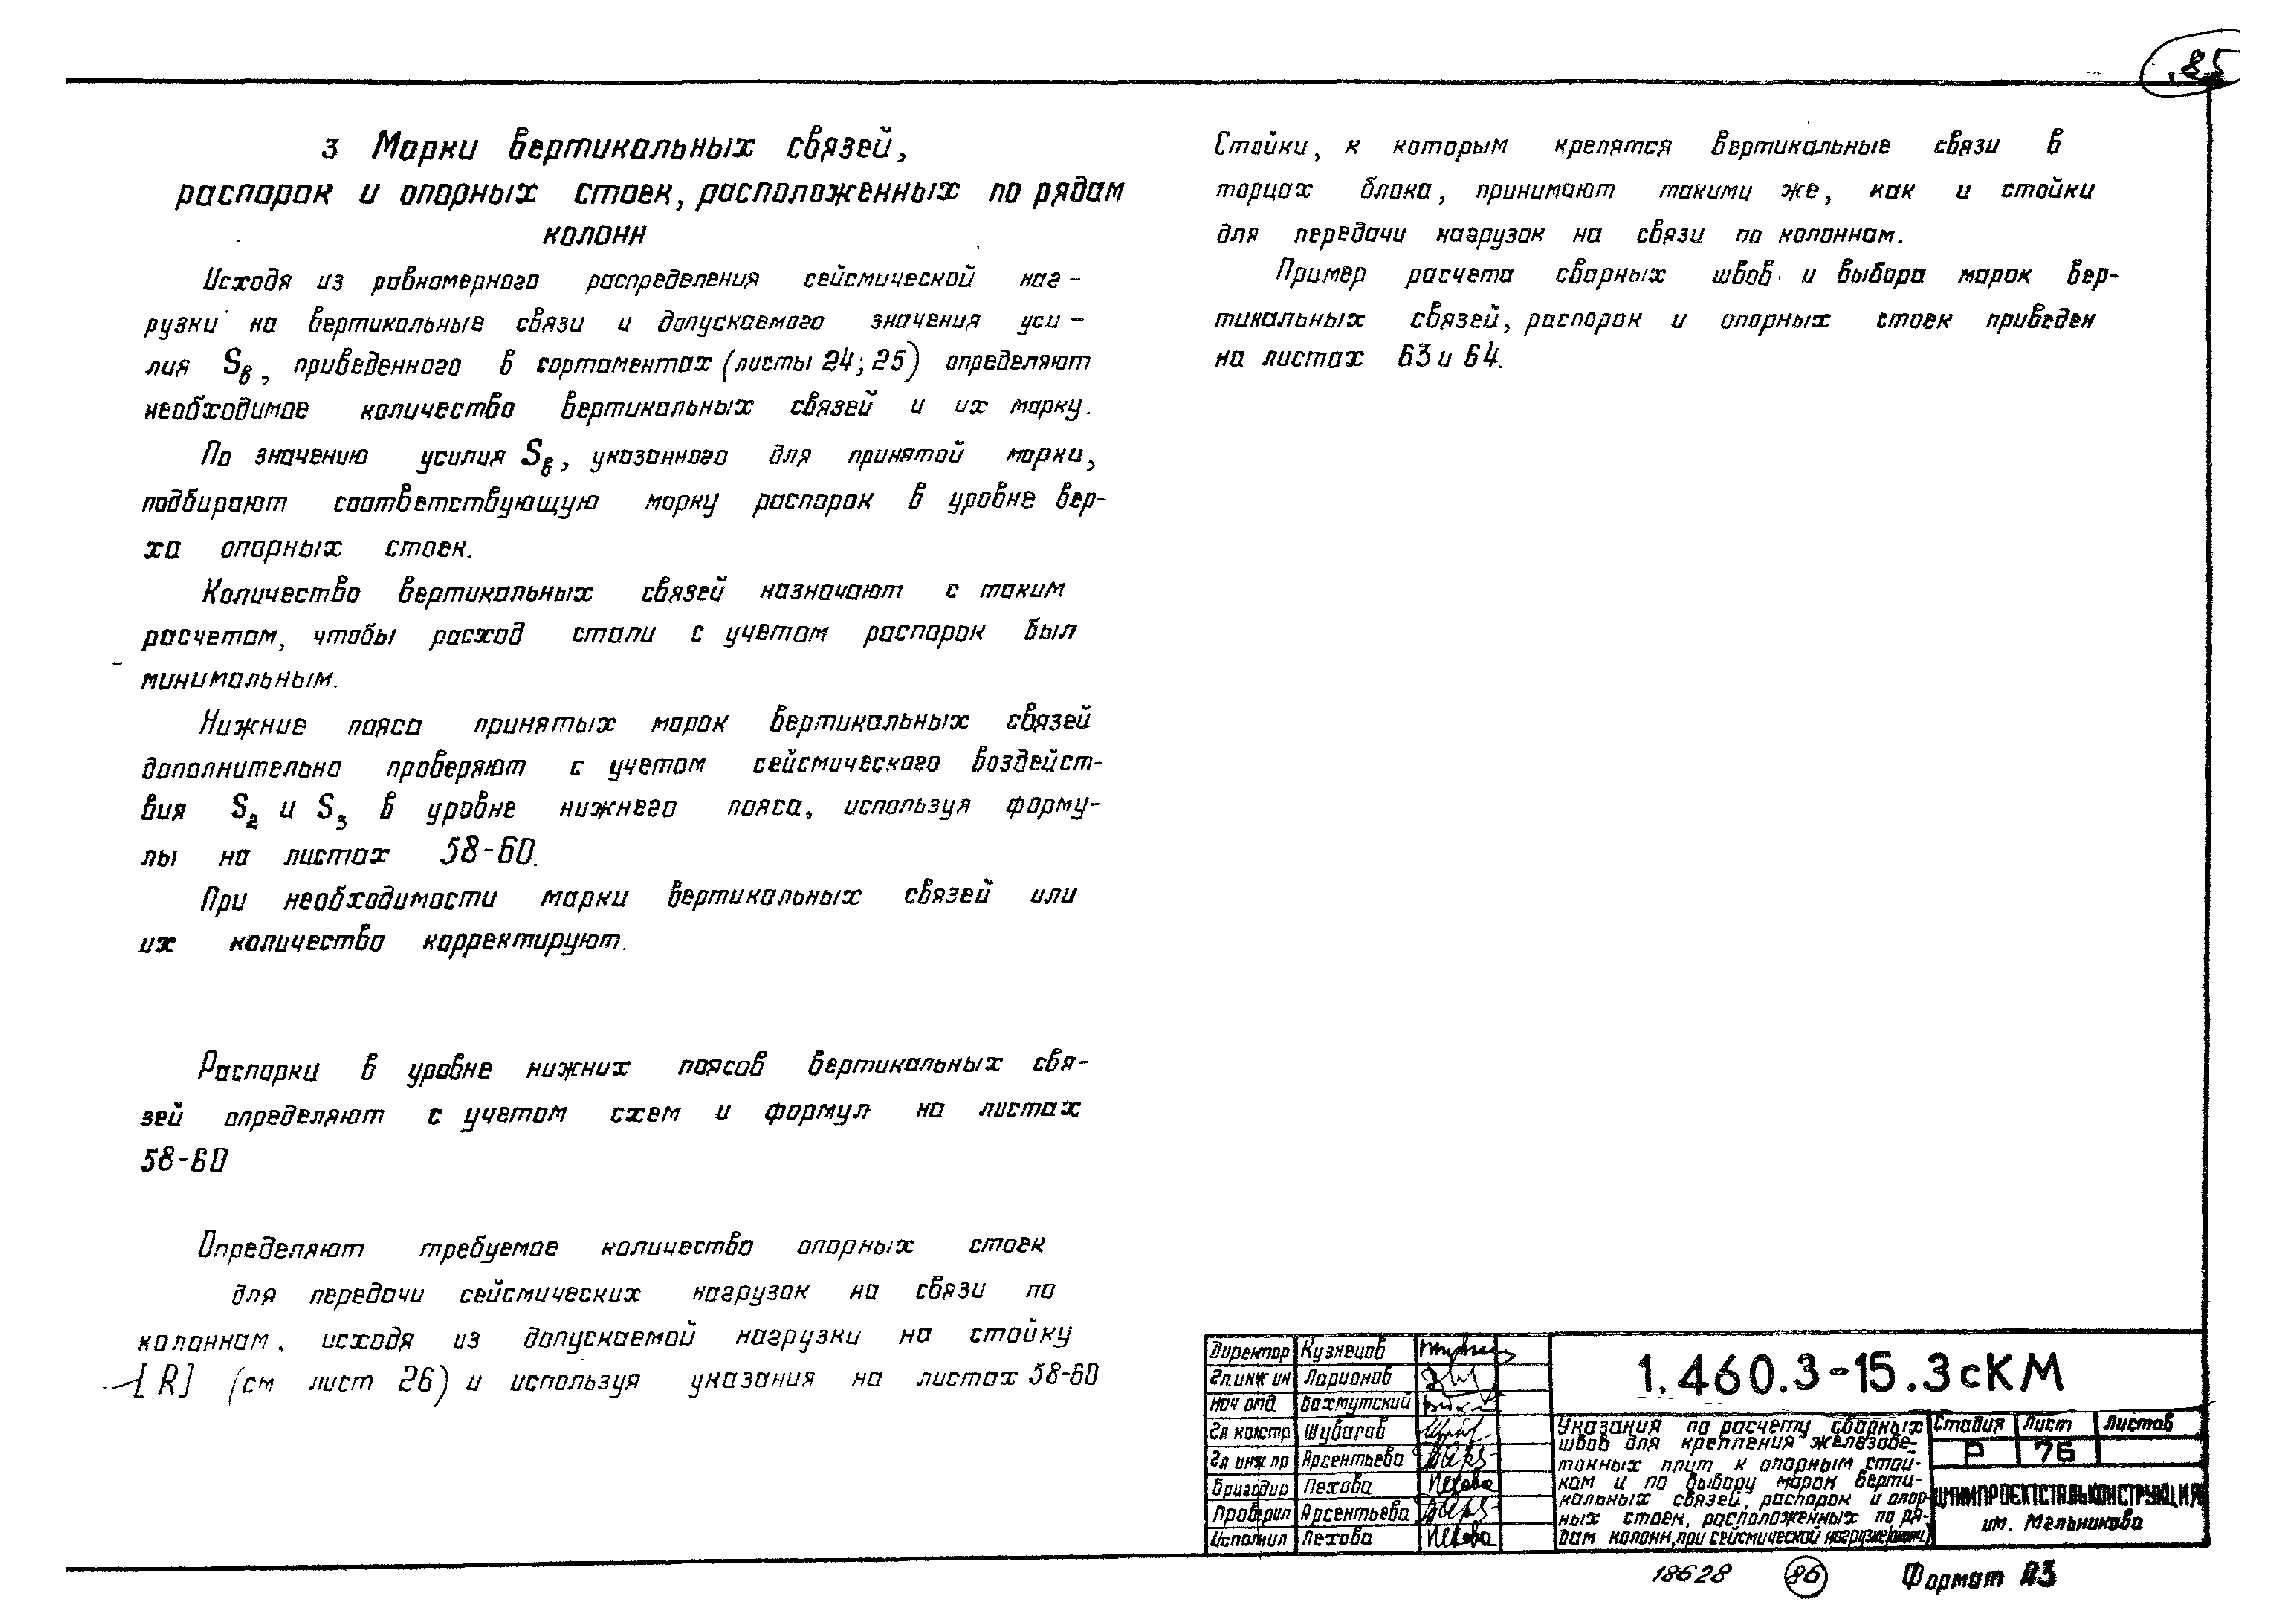 85
3 Марки вертикальных связей,
распорок и опорных стоек, расположенных по рядам
колонн
Исходя из равномерного распределения сейсмической наг-
рузки на вертикальные связи и допускаемого значения уси-
лия Sв, приведенного в сортаментах (листы 24; 25) определяют
необходимое количество вертикальных связей и их марку.
По значению усилия Sв, указанного для принятой марки,
подбирают соответствующую марку распорок в уровне вер-
ха опорных стоек.
Количество вертикальных связей назначают с таким
расчетом, чтобы расход стали с учетом распорок был
минимальным.
Нижние пояса принятых марок вертикальных связей
дополнительно проверяют с учетом сейсмического воздейст-
вия S2 и S3 в уровне нижнего пояса, используя форму-
лы на листах 58-60.
При необходимости марки вертикальных связей или
их количество корректируют.
Распорки в уровне нижних поясов вертикальных свя-
зей определяют с учетом схем и формул на листах
58-60
Определяют требуемое количество опорных стоек
для передачи сейсмических нагрузок на связи по
колоннам, исходя из допускаемой нагрузки на стойку
[R] (см лист 26) и используя указания на листах 58-60
Стойки, к которым крепятся вертикальные связи в
торцах блока, принимают такими же, как и стойки
для передачи нагрузок на связи по колоннам.
Пример расчета сварных швов и выбора марок вер-
тикальных связей, распорок и опорных стоек приведен
на листах 63 и 64.
Директор Кузнецов
Гл инж ин Ларионов
Нач отд Бахмутский
Гл констр Шувалов
Гл инж пр Арсентьева
Бригадир Пехова
Проверил Арсентьева
Исполнил Пехова
1.460.3-15.3сКМ
Указания по расчету сварных
швов для крепления железобе-
тонных плит к опорным стой-
кам и по выбору марок верти-
кальных связей, распорок и опор-
ных стоек, расположенных по ря-
дам колонн, при сейсмической нагрузке
Стадия Лист Листов
Р 76
ЦНИИПРОЕКТСТАЛЬКОНСТРУКЦИЯ
им. Мельникова
18628 86 Формат А3